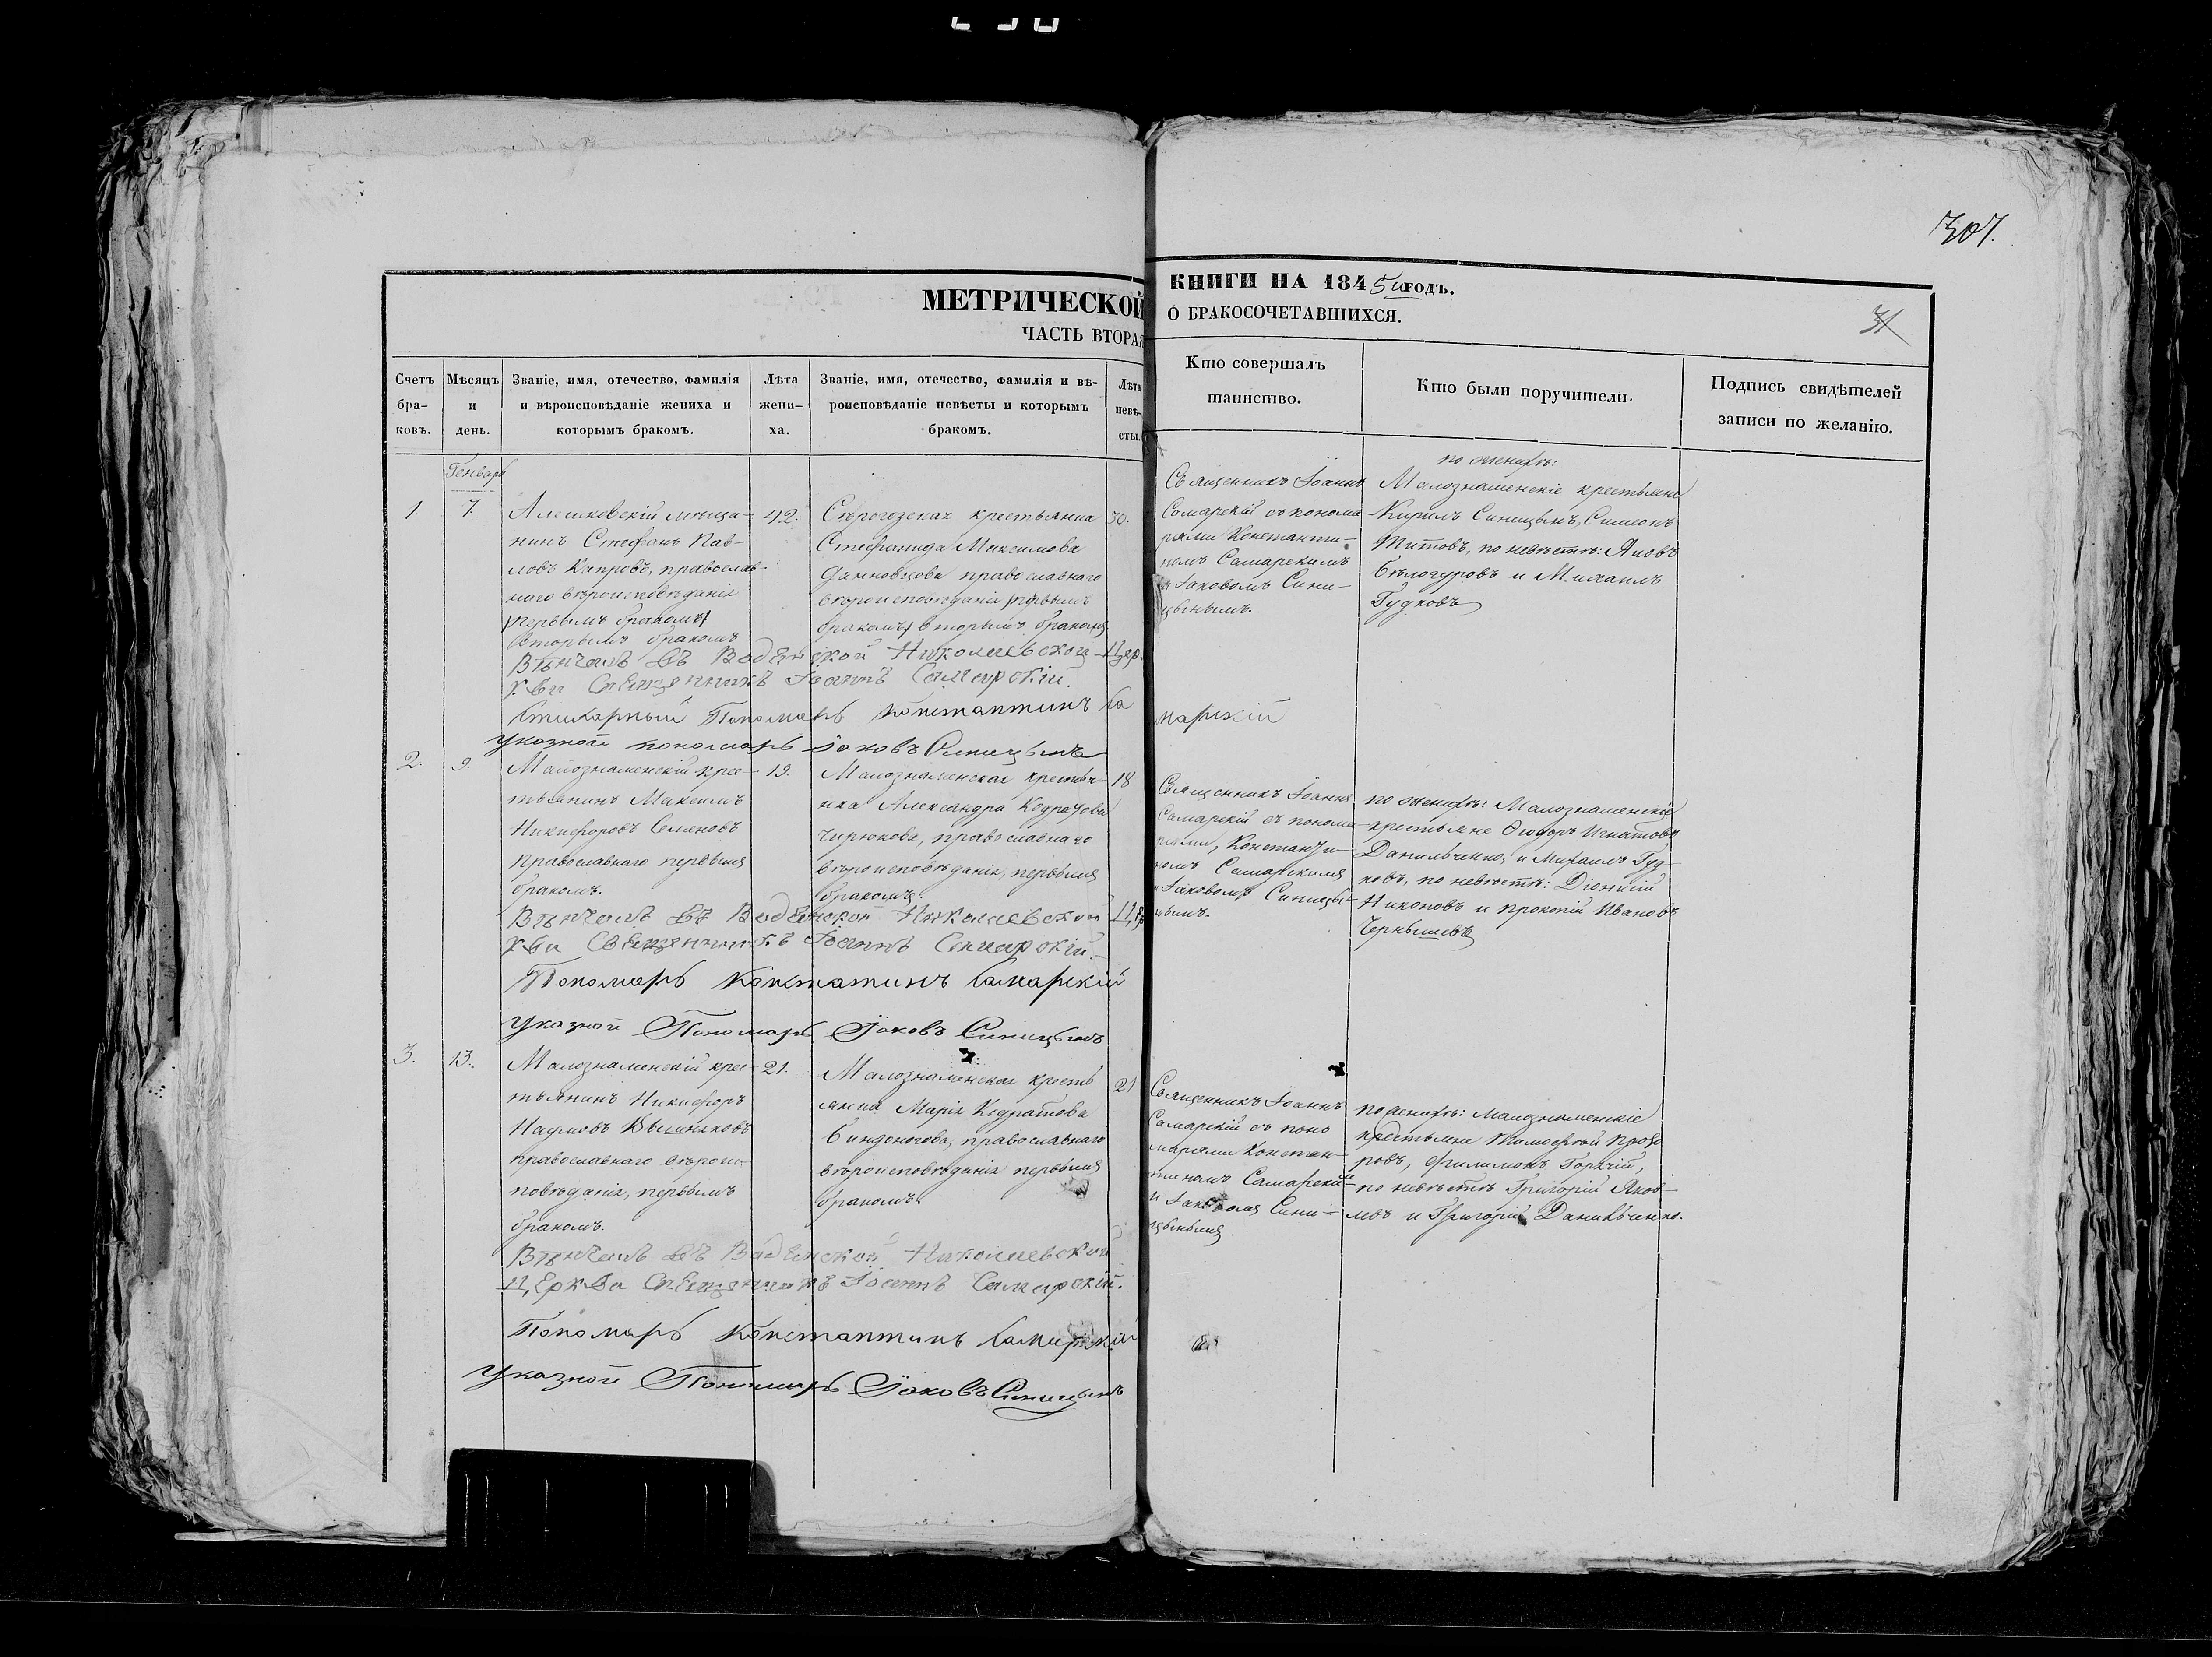 307.
МЕТРИЧЕСКОЙ КНИГИ НА 1845й ГОДЪ.
ЧАСТЬ ВТОРАЯ О БРАКОСОЧЕТАВШИХСЯ.
31
Счетъ бра-ковъ.
Мѣсяцъ и день.
Званіе, имя, отечество, фамилія
и вѣроисповѣданіе жениха и
которымъ бракомъ.
Лѣта жени-ха.
Званіе, имя, отечество, фамилія и вѣ-
роисповѣданіе невѣсты и которымъ
бракомъ.
Лѣта невѣ-сты.
Кто совершалъ
таинство.
Кто были поручители.
Подпись свидѣтелей
записи по желанію.
Генварь
1.
7.
Алешковскій мѣща-
нинъ Стефанъ Пав-
ловъ Капровъ, православ-
наго вѣроисповѣданія
первымъ бракомъ
вторымъ бракомъ
42.
Сѣрогозская крестьянка
Стефанида Максимова
православнаго
вѣроисповѣданія первымъ
бракомъ вторымъ бракомъ
30.
Священникъ Іоаннъ
Самарскій съ понома-
рями Константи-
номъ Самарскимъ
и Іаковомъ Сини-
цынымъ.
по женихѣ:
Малознаменскіе крестьяне
Кирилъ Синицынъ, Симеонъ
Титовъ, по невѣстѣ: Яковъ
Бѣлогуровъ и Михаилъ
Гудковъ
Вѣнчалъ въ Водянской Николаевской Цер-
кви Священникъ Іоаннъ Самарскій.
Стихарный Пономарь Константинъ Самарскій
Указной пономарь Іаковъ Синицынъ
2.
9.
Малознаменскій крес-
тьянинъ Максимъ
Никифоровъ Семеновъ
православнаго первымъ
бракомъ.
19.
Малознаменская крестья-
нка Александра Кодратова
Чирюкова, православнаго
вѣроисповѣданія, первымъ
бракомъ.
18
Священникъ Іоаннъ
Самарскій съ понома-
рями, Константи-
номъ Самарскимъ
и Іаковомъ Синицы-
нымъ.
по женихѣ: Малознаменскіе
крестьяне Ѳеодоръ Игнатовъ
Данильченко, и Михаилъ Гуд-
ковъ, по невѣстѣ: Діонисій
Никоновъ и Прокопій Ивановъ
Чернышевъ
Вѣнчалъ въ Водянской Николаевской Цер-
кви Священникъ Іоаннъ Самарскій.
Пономарь Константинъ Самарскій
Указной Пономарь Іаковъ Синицынъ
3.
13.
Малознаменскій крес-
тьянинъ Никифоръ
Наумовъ
православнаго вѣроис-
повѣданія, первымъ
бракомъ.
21.
Малознаменская кресть
янка Марія Кодратова
православнаго
вѣроисповѣданія первымъ
бракомъ
21
Священникъ Іоаннъ
Самарскій съ поно
марями Констан-
тиномъ Самарскимъ
и Іаковомъ Сини-
цынымъ.
по женихѣ: Малознаменскіе
крестьяне Тимофей Прохо
ровъ, Филимонъ Горячій,
по невѣстѣ Григорій Яков-
левъ и Григорій Данильченко.
Вѣнчалъ въ Водянской Николаевской
Церкви Священникъ Іоаннъ Самарскій.
Пономарь Константинъ Самарскій
Указной Пономарь Іаковъ Синицынъ